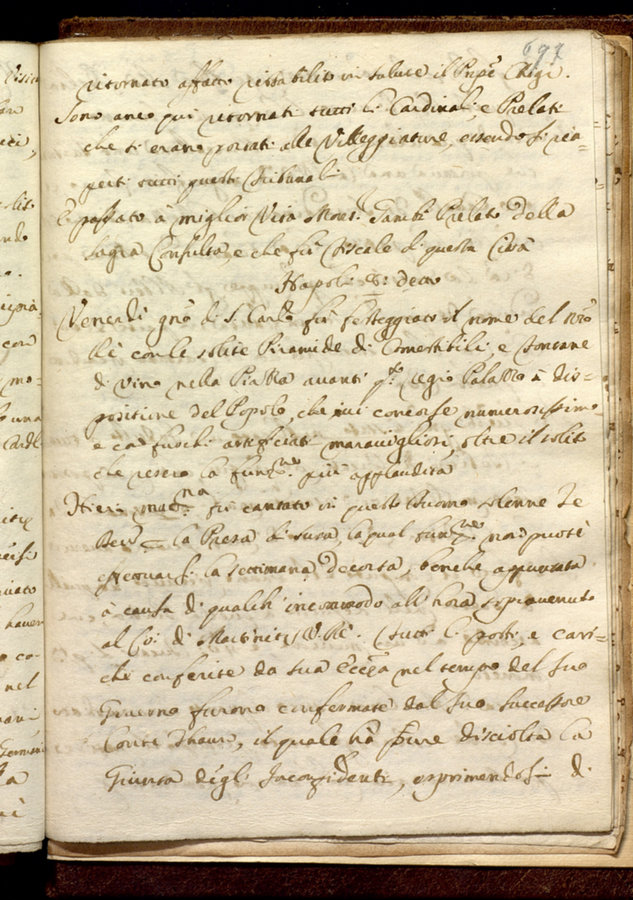 697
ritornato affatto ristabilito in salute il Prñpe Chigi.
Sono anco qui ritornati tutti li Cardinali, e Prelati
che si erano portati alle Villeggiature, essendosi ria-
perti tutti questi Tribunali
È passato à miglior Vita Mons.r Prelato della
Sagra Consulta, e che fù Fiscale di questa Città
Napoli 8: detto
Venerdì gño di S. Carlo fù festeggiato il nome del
Rè con le solite Piramide di Comestibili, e Fontane
di vino nella Piazza avanti q.to regio Palazzo à dis-
positione del Popolo, che ivi concorse numerosissimo
e co' fuochi artificiati maravigliosi, oltre il solito
che resero la funz.ne più applaudita
Hieri matt.na fù cantato in questo Duomo solenne Te
Deu p la Presa di Susa, la qual funz.ne non puote
effettuarsi la settimana decorsa, benche appuntata
à causa di qualch' incommodo all' hora sopravenuto
al Co: di Martinitz V. Rè. Tutti li posti, e cari-
che conferite da sua Eccza nel tempo del suo
Governo furono confermate dal suo successore
Conte Thaun, il quale hà pure disciolta la
Giunta degl' Inconfidenti, esprimendosi di